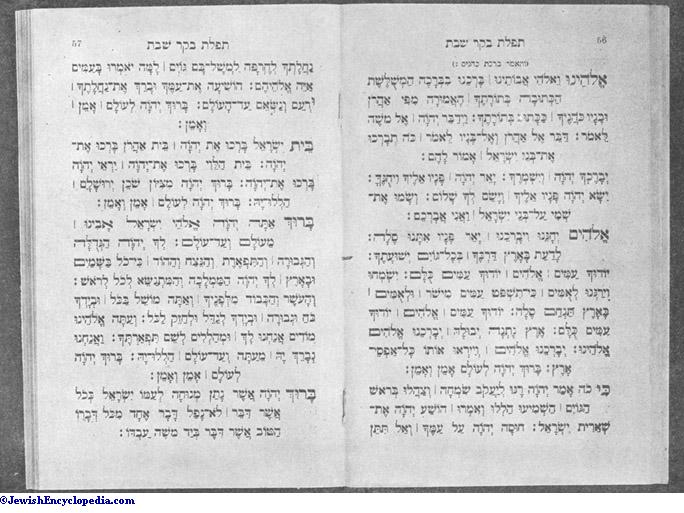 56
תפלת בקר שבת
(ותאמר ברכת כהנים :)
אֱלֹהֵינוּ וֵאלֹהֵי אֲבוֹתֵינוּ | בָּרְכֵנוּ כַבְּרָכָה הַמְשֻׁלֶּשֶׁת
הַכְּתוּבָה בְּתוֹרָתֶךָ | הָאֲמוּרָה מִפִּי אַהֲרֹן
וּבָנָיו כֹּהֲנֶיךָ | כַּכָּתוּב בְּתוֹרָתֶךָ: וַיְדַבֵּר יְהוָה | אֶל מֹשֶׁה
לֵּאמֹר: דַּבֵּר אֶל אַהֲרֹן וְאֶל־בָּנָיו לֵאמֹר | כֹּה תְבָרְכוּ
אֶת־בְּנֵי יִשְׂרָאֵל | אָמוֹר לָהֶם:
יְבָרֶכְךָ יְהוָה | וְיִשְׁמְרֶךָ: יָאֵר יְהוָה | פָּנָיו אֵלֶיךָ וִיחֻנֶּךָּ:
יִשָּׂא יְהוָה פָּנָיו אֵלֶיךָ | וְיָשֵׂם לְךָ שָׁלוֹם: וְשָׂמוּ אֶת־
שְׁמִי עַל־בְּנֵי יִשְׂרָאֵל | וַאֲנִי אֲבָרֲכֵם:
אֱלֹהִים יְחָנֵּנוּ וִיבָרְכֵנוּ | יָאֵר פָּנָיו אִתָּנוּ סֶלָה:
לָדַעַת בָּאָרֶץ דַּרְכֶּךָ | בְּכָל־גּוֹיִם יְשׁוּעָתֶךָ:
יוֹדוּךָ עַמִּים | אֱלֹהִים | יוֹדוּךָ עַמִּים כֻּלָּם: יִשְׂמְחוּ
וִירַנְּנוּ לְאֻמִּים | כִּי־תִשְׁפֹּט עַמִּים מִישֹׁר | וּלְאֻמִּים |
בָּאָרֶץ תַּנְחֵם סֶלָה: יוֹדוּךָ עַמִּים | אֱלֹהִים | יוֹדוּךָ
עַמִּים כֻּלָּם: אֶרֶץ נָתְנָה יְבוּלָהּ | יְבָרְכֵנוּ אֱלֹהִים
אֱלֹהֵינוּ: יְבָרְכֵנוּ אֱלֹהִים | וְיִירְאוּ אוֹתוֹ כָּל־אַפְסֵי
אָרֶץ: בָּרוּךְ יְהוָה לְעוֹלָם אָמֵן וְאָמֵן:
כִּי כֹה אָמַר יְהוָה רָנּוּ לְיַעֲקֹב שִׂמְחָה | וְצַהֲלוּ בְּרֹאשׁ
הַגּוֹיִם | הַשְׁמִיעוּ הַלְלוּ וְאִמְרוּ | הוֹשַׁע יְהוָה אֶת־
שְׁאֵרִית יִשְׂרָאֵל: חוּסָה יְהוָה עַל עַמֶּךָ | וְאַל תִּתֵּן
57
תפלת בקר שבת
נַחֲלָתְךָ לְחֶרְפָּה לִמְשָׁל־בָּם גּוֹיִם | לָמָּה יֹאמְרוּ בָעַמִּים
אַיֵּה אֱלֹהֵיהֶם: הוֹשִׁיעָה אֶת־עַמֶּךָ וּבָרֵךְ אֶת־נַחֲלָתֶךָ |
וּרְעֵם וְנַשְּׂאֵם עַד־הָעוֹלָם: בָּרוּךְ יְהוָה לְעוֹלָם | אָמֵן |
וְאָמֵן:
בֵּית יִשְׂרָאֵל בָּרְכוּ אֶת יְהוָה | בֵּית אַהֲרֹן בָּרְכוּ אֶת־
יְהוָה: בֵּית הַלֵּוִי בָּרְכוּ אֶת־יְהוָה | יִרְאֵי יְהוָה
בָּרְכוּ אֶת־יְהוָה: בָּרוּךְ יְהוָה מִצִּיּוֹן שֹׁכֵן יְרוּשָׁלָיִם |
הַלְלוּ־יָהּ: בָּרוּךְ יְהוָה לְעוֹלָם | אָמֵן וְאָמֵן:
בָּרוּךְ אַתָּה יְהוָה אֱלֹהֵי יִשְׂרָאֵל אָבִינוּ |
מֵעוֹלָם וְעַד־עוֹלָם: לְךָ יְהוָה הַגְּדֻלָּה
וְהַגְּבוּרָה | וְהַתִּפְאֶרֶת וְהַנֵּצַח וְהַהוֹד | כִּי־כֹל בַּשָּׁמַיִם
וּבָאָרֶץ | לְךָ יְהוָה הַמַּמְלָכָה וְהַמִּתְנַשֵּׂא לְכֹל לְרֹאשׁ:
וְהָעֹשֶׁר וְהַכָּבוֹד מִלְּפָנֶיךָ | וְאַתָּה מוֹשֵׁל בַּכֹּל | וּבְיָדְךָ
כֹּחַ וּגְבוּרָה | וּבְיָדְךָ לְגַדֵּל וּלְחַזֵּק לַכֹּל: וְעַתָּה אֱלֹהֵינוּ
מוֹדִים אֲנַחְנוּ לָךְ | וּמְהַלְלִים לְשֵׁם תִּפְאַרְתֶּךָ: וַאֲנַחְנוּ
נְבָרֵךְ יָהּ | מֵעַתָּה וְעַד־עוֹלָם | הַלְלוּ־יָהּ: בָּרוּךְ יְהוָה
לְעוֹלָם | אָמֵן וְאָמֵן:
בָּרוּךְ יְהוָה אֲשֶׁר נָתַן מְנוּחָה לְעַמּוֹ יִשְׂרָאֵל בְּכֹל
אֲשֶׁר דִּבֵּר | לֹא־נָפַל דָּבָר אֶחָד מִכֹּל דְּבָרוֹ
הַטּוֹב אֲשֶׁר דִּבֶּר בְּיַד מֹשֶׁה עַבְדּוֹ:
©JewishEncyclopedia.com